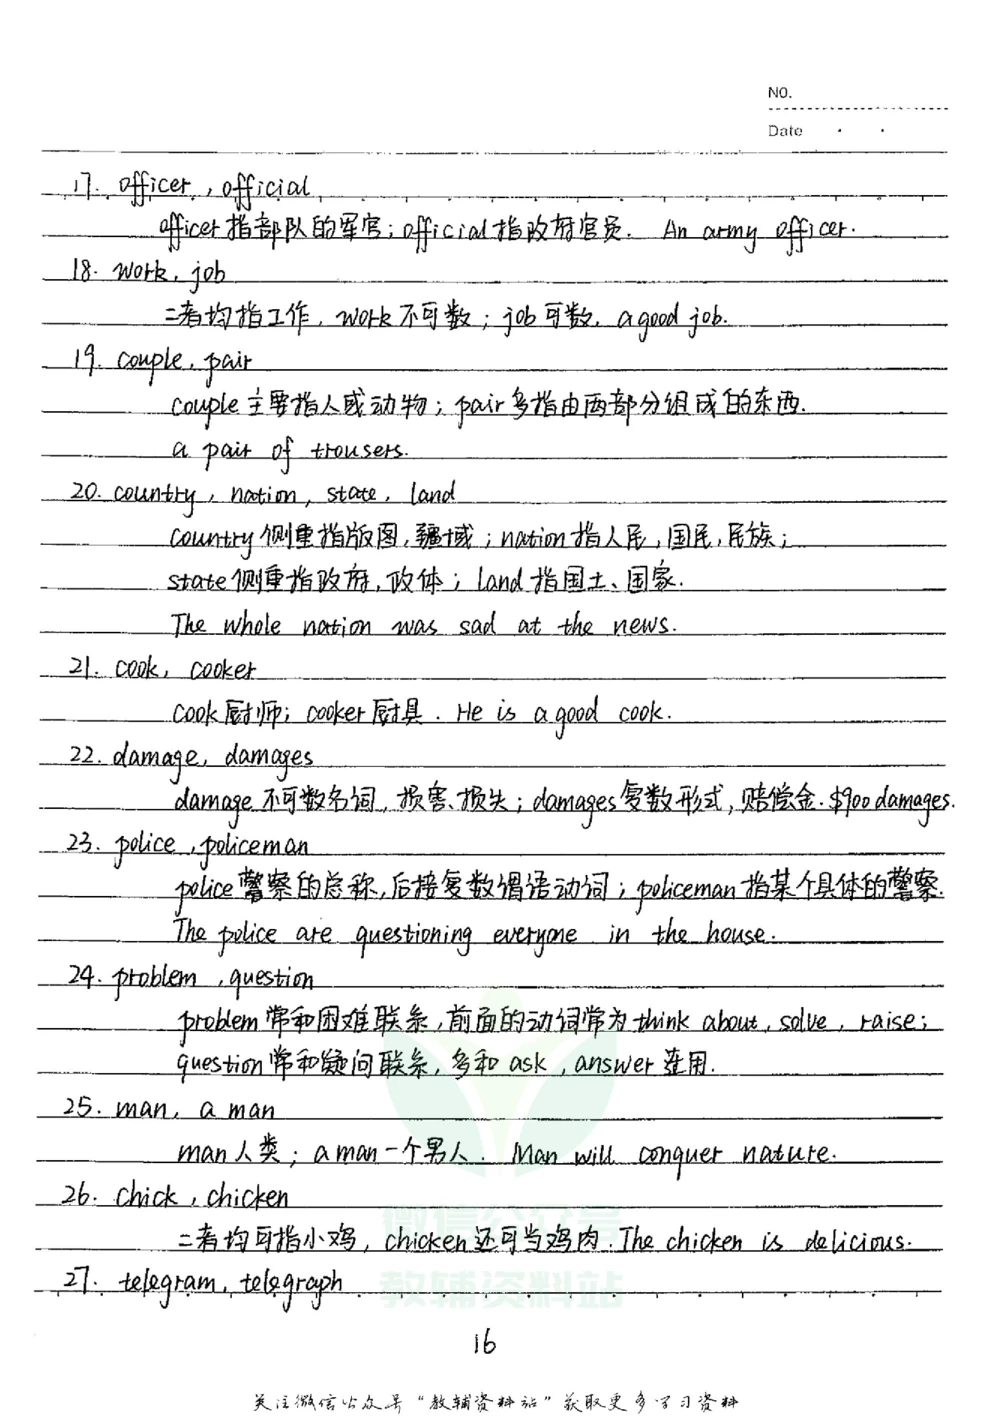 NO.
Date
17. officer, official
officer指部队的军官；official指政府官员. An army officer.
18. work, job
二者均指工作, work不可数；job可数. a good job.
19. couple, pair
couple主要指人或动物；pair多指由两部分组成的东西.
a pair of trousers.
20. country, nation, state, land
country侧重指版图,疆域；nation指人民,国民,民族；
state侧重指政府,政体；land指国土、国家.
The whole nation was sad at the news.
21. cook, cooker
cook厨师；cooker厨具. He is a good cook.
22. damage, damages
damage不可数名词, 损害、损失；damages复数形式, 赔偿金. $900 damages.
23. police, policeman
police警察的总称,后接复数谓语动词；policeman指某个具体的警察.
The police are questioning everyone in the house.
24. problem, question
problem常和困难联系,前面的动词常为think about, solve, raise；
question常和疑问联系, 多和ask, answer连用.
25. man, a man
man人类；a man一个男人. Man will conquer nature.
26. chick, chicken
二者均可指小鸡, chicken还可当鸡肉. The chicken is delicious.
微信公众号
27. telegram, telegraph
教辅资料站
16
关注微信公众号“教辅资料站”获取更多学习资料